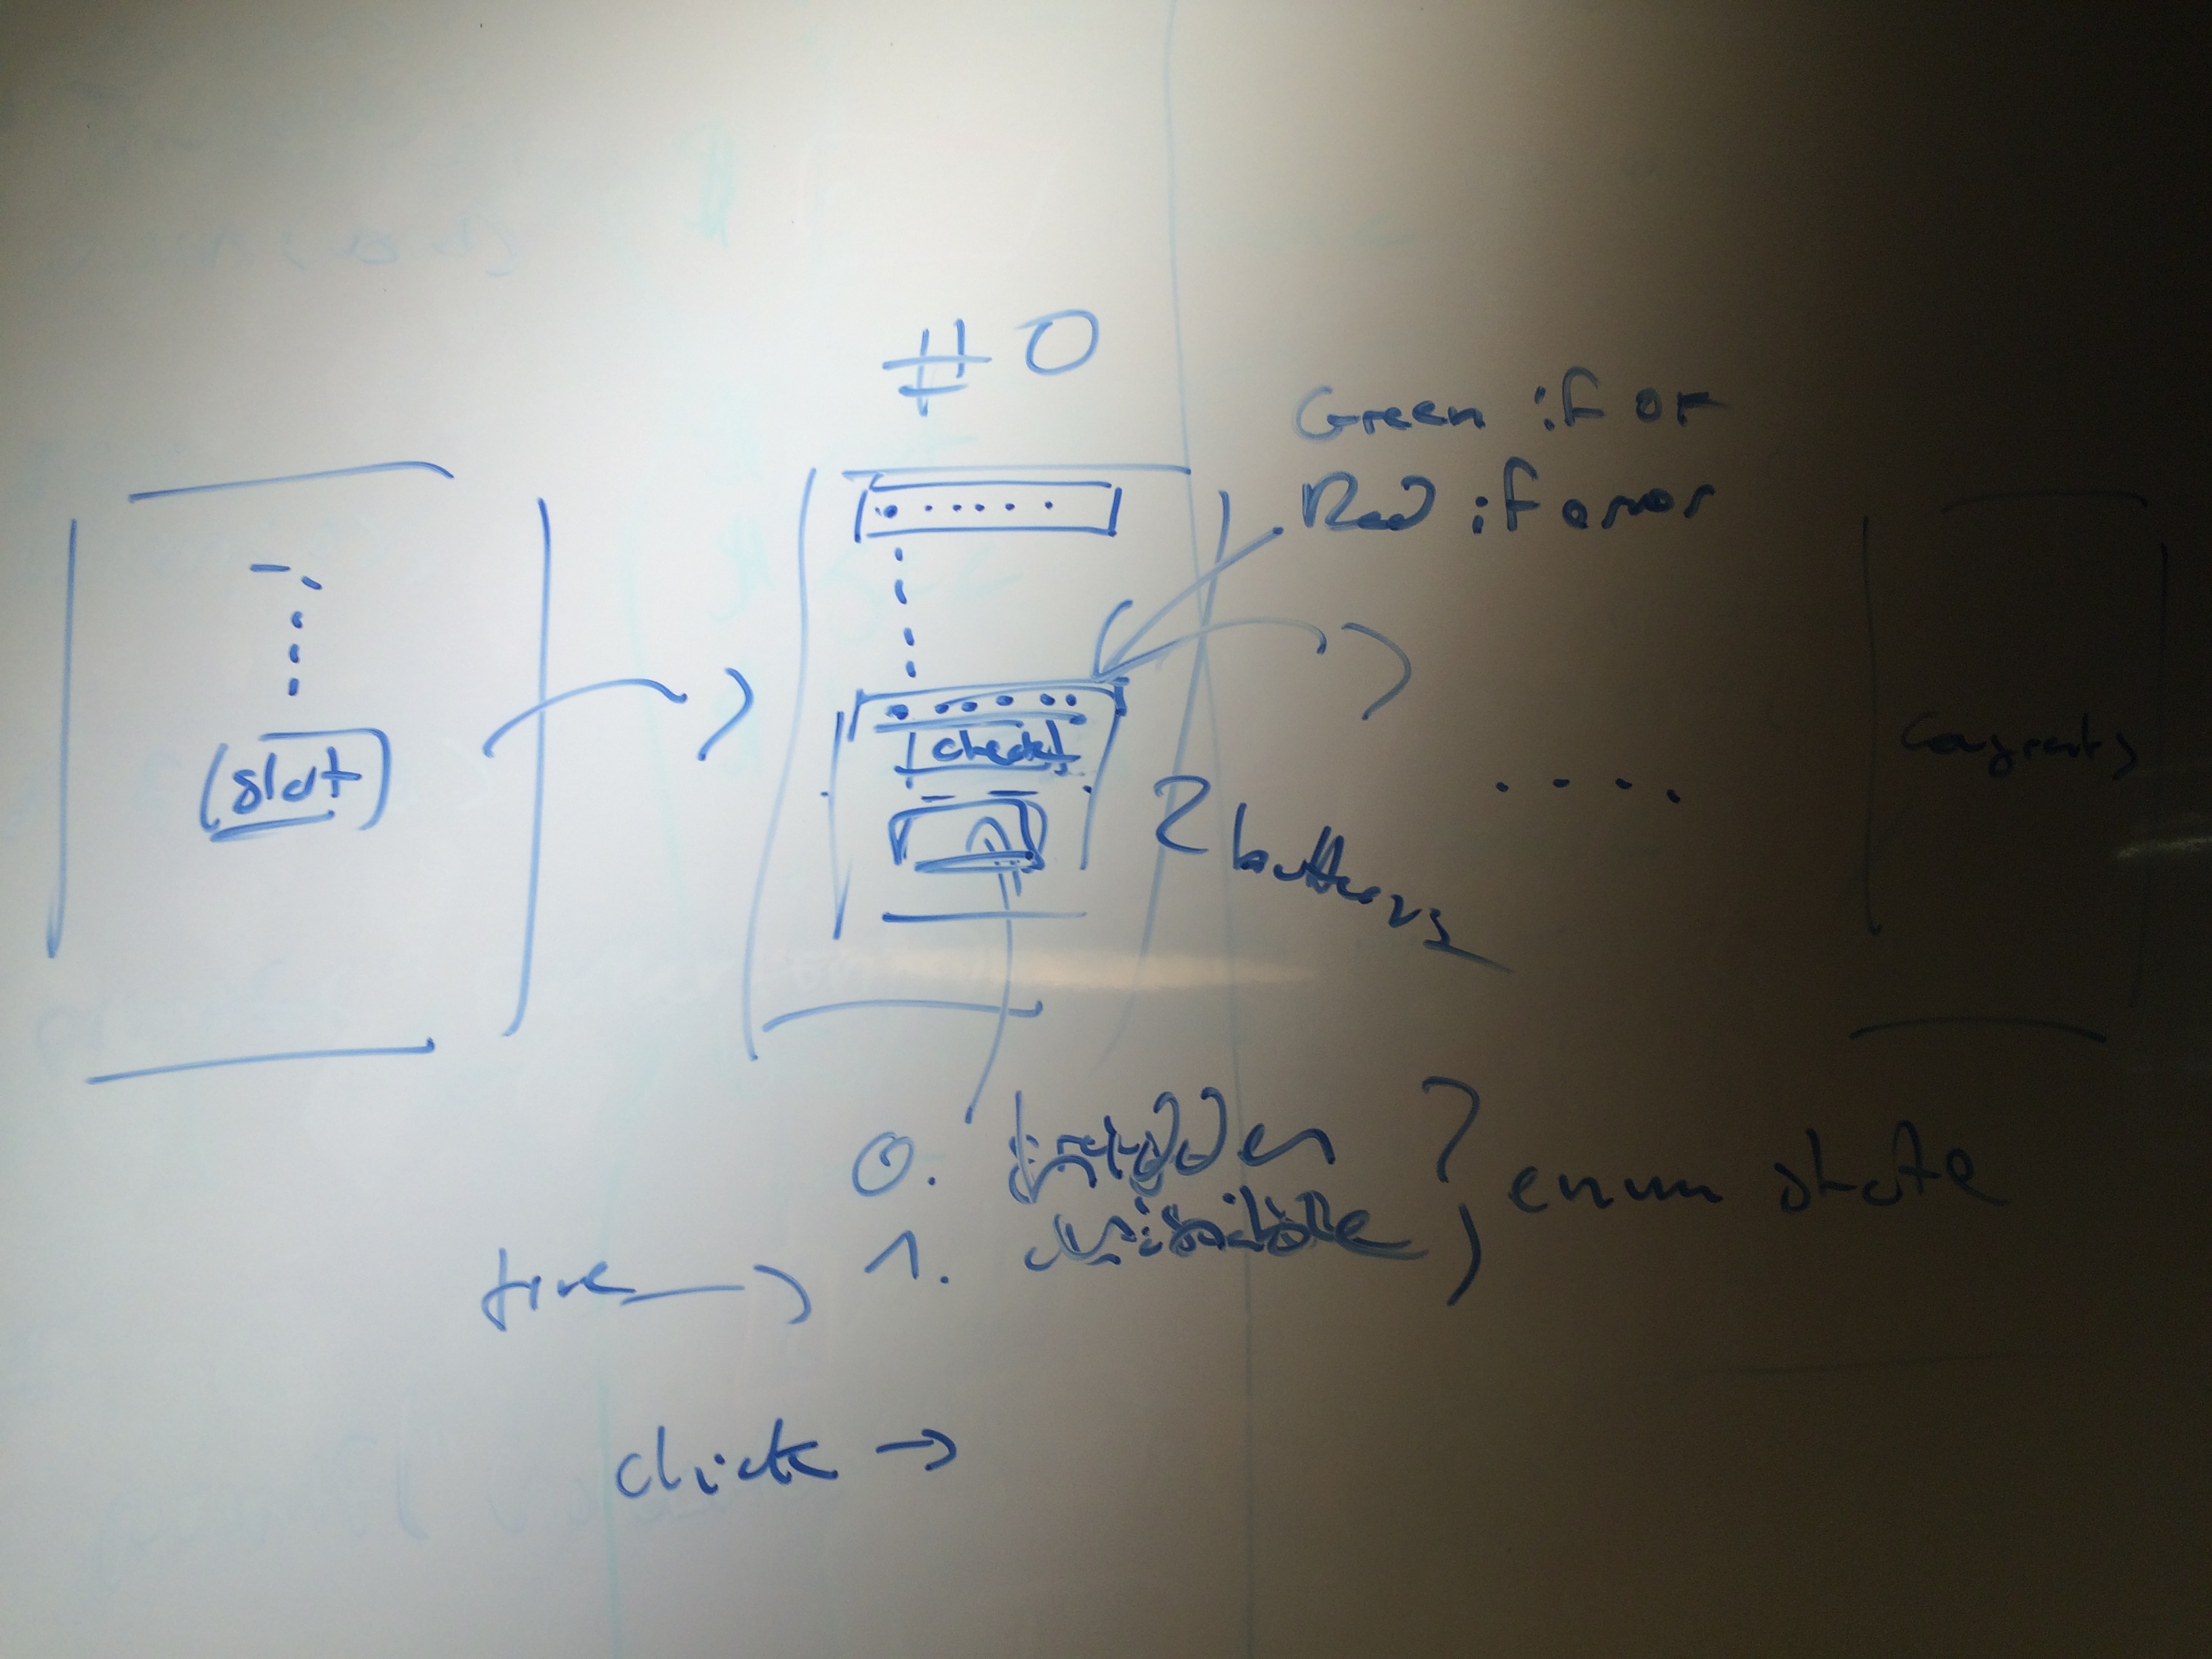 # 0
Green if ok
Red if error
start
check
2 buttons
Congrats
0. hidden
1. visible
enum state
time
click →